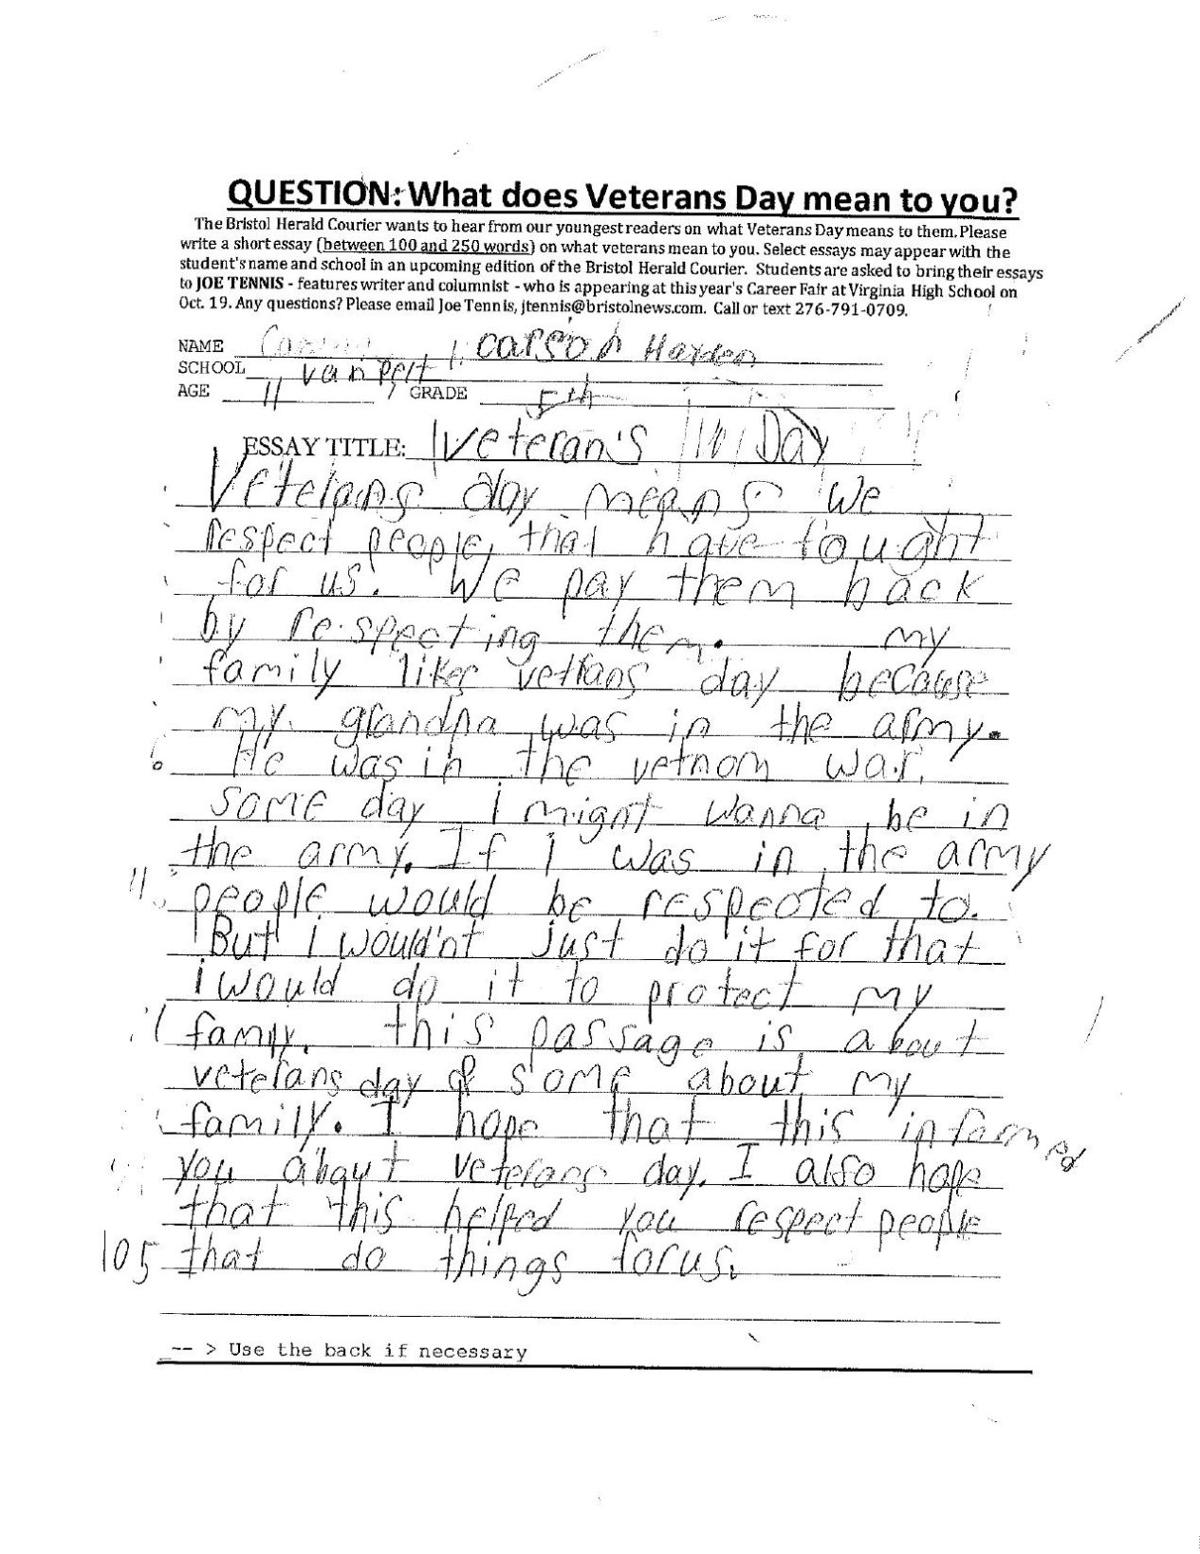 QUESTION: What does Veterans Day mean to you?
The Bristol Herald Courier wants to hear from our youngest readers on what Veterans Day means to them. Please
write a short essay (between 100 and 250 words) on what veterans mean to you. Select essays may appear with the
student's name and school in an upcoming edition of the Bristol Herald Courier. Students are asked to bring their essays
to JOE TENNIS - features writer and columnist - who is appearing at this year's Career Fair at Virginia High School on
Oct. 19. Any questions? Please email Joe Tennis, jtennis@bristolnews.com. Call or text 276-791-0709.
NAME Carson Harden
SCHOOL van pelt
AGE 11 GRADE 5th
ESSAY TITLE: Veteran's Day
Veterans day means we
respect people, that have fought
for us. We pay them back
by respecting them. my
family likes vetrans day because
my grandpa was in the army.
He was in the vetnom war.
some day i might wanna be in
the army. If i was in the army
people would be respected to.
But i would'nt just do it for that
i would do it to protect my
famly. this passage is about
veterans day & some about my
family. I hope that this informed
you about veterans day. I also hope
that this helped you respect people
105 that do things for us.
-- > Use the back if necessary